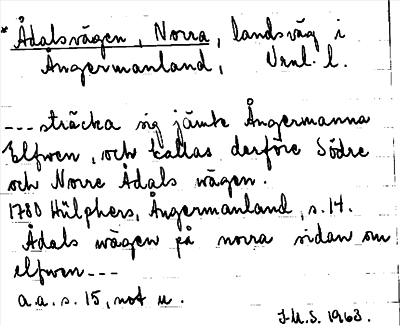 * Ådalsvägen, Norra, landsväg i
Ångermanland, Vnl. l.
--- sträcka sig jämte Ångermanna
Elfwen, och kallas derföre Södre
och Norre Ådals wägen.
1780 Hülphers, Ångermanland, s. 14.
Ådals wägen på norra sidan om
elfwen ---
a.a. s. 15, not u.
J.M.S. 1963.